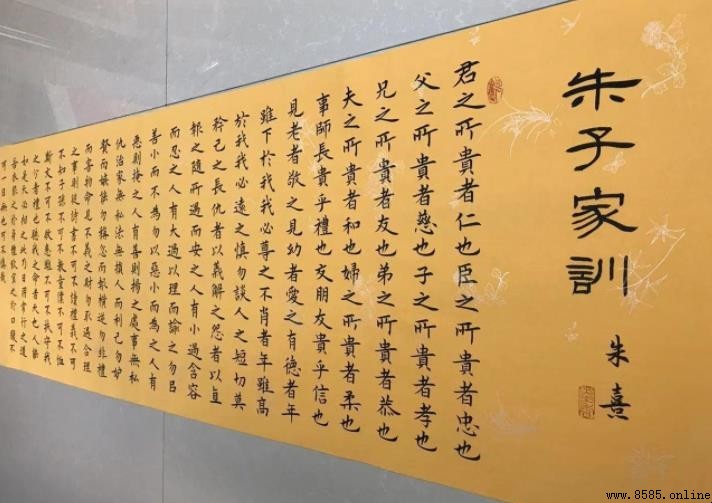 朱子家訓
朱熹
君之所貴者仁也臣之所貴者忠也
父之所貴者慈也子之所貴者孝也
兄之所貴者友也弟之所貴者恭也
夫之所貴者和也婦之所貴者柔也
事師長貴乎禮也交朋友貴乎信也
見老者敬之見幼者愛之有德者年
雖下於我我必尊之不肖者年雖高
於我我必遠之慎勿談人之短切莫
矜己之長仇者以義解之怨者以直
報之隨所遇而安之人有小過含容
而忍之人有大過以理而諭之勿以
善小而不為勿以惡小而為之人有
惡則掩之人有善則揚之處事無私
仇治家無私法無損人而利己勿妒
賢而嫉能勿稱忿而報橫逆勿非禮
而害物命見不義之財勿取遇合理
之事則從詩書不可不讀禮義不可
不知子孫不可不教童僕不可不恤
斯文不可不敬患難不可不扶守我
之分者禮也聽我之命者天也人能
如是天必相之此乃日用常行之道
若衣服之於身體飲食之於口腹不
可一日無也可不慎哉
www.8585.online